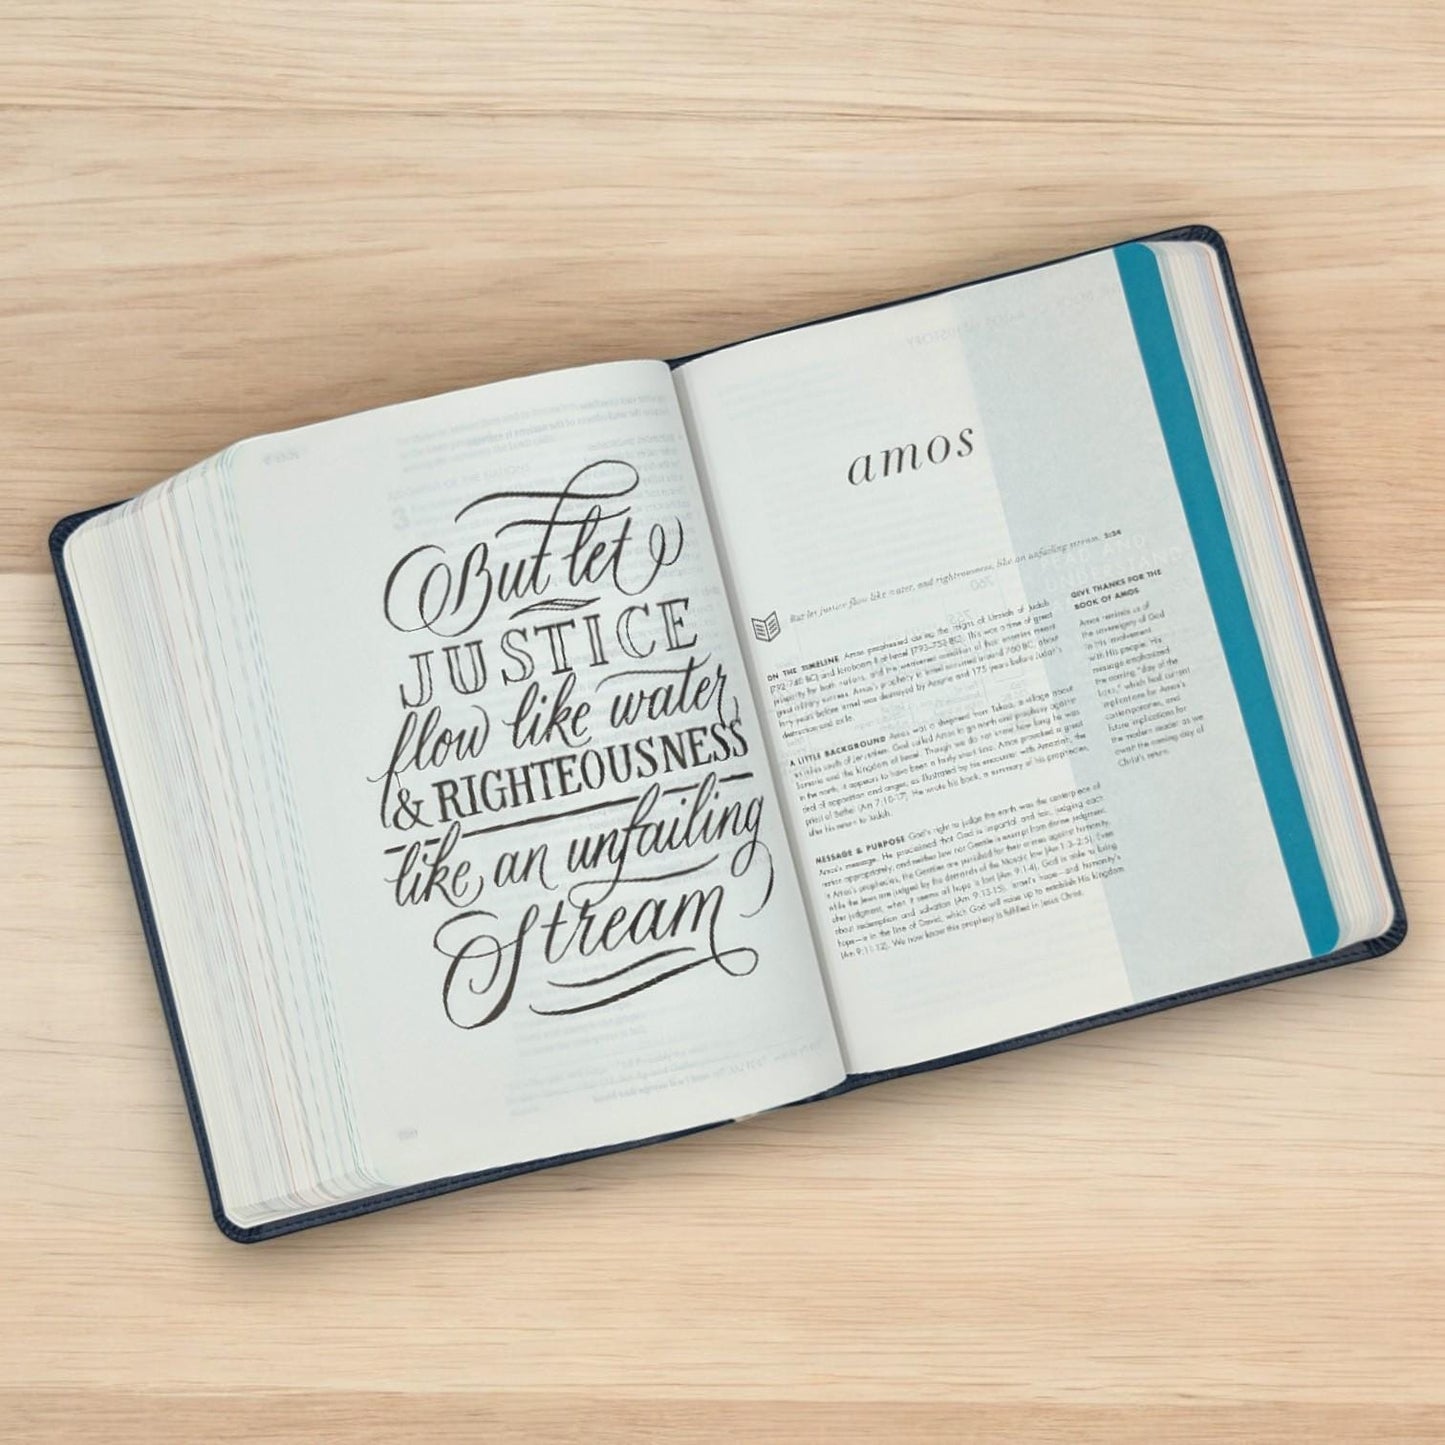 But let
JUSTICE
flow like water,
& RIGHTEOUSNESS
like an unfailing
Stream
amos
But let justice flow like water, and righteousness, like an unfailing stream. 5:24
ON THE TIMELINE Amos prophesied during the reigns of Uzziah of Judah
(792–740 BC) and Jeroboam II of Israel (793–753 BC). This was a time of great
prosperity for both nations, and the weakened condition of their enemies meant
great military success. Amos's prophecy to Israel occurred around 760 BC, about
forty years before Israel was destroyed by Assyria and 175 years before Judah's
destruction and exile.
A LITTLE BACKGROUND Amos was a shepherd from Tekoa, a village about
miles south of Jerusalem. God called Amos to go north and prophesy against
Samaria and the kingdom of Israel. Though we do not know how long he was
in the north, it appears to have been a fairly short time. Amos provoked a great
deal of opposition and anger, as illustrated by his encounter with Amaziah, the
priest of Bethel (Am 7:10-17). He wrote his book, a summary of his prophecies,
after his return to Judah.
MESSAGE & PURPOSE God's right to judge the earth was the centerpiece of
Amos's message. He proclaimed that God is impartial and fair, judging each
nation appropriately, and neither Jew nor Gentile is exempt from divine judgment.
In Amos's prophecies, the Gentiles are punished for their crimes against humanity,
while the Jews are judged by the demands of the Mosaic law (Am 1:3–2:5). Even
after judgment, when it seems all hope is lost (Am 9:1-4), God is able to bring
about redemption and salvation (Am 9:13-15). Israel's hope—and humanity's
hope—is in the line of David, which God will raise up to establish His kingdom
(Am 9:11-12). We now know this prophecy is fulfilled in Jesus Christ.
GIVE THANKS FOR THE
BOOK OF AMOS
Amos reminds us of
the sovereignty of God
in his involvement
with His people. His
message emphasized
the coming "day of the
LORD," which had current
implications for Amos's
contemporaries, and
future implications for
the modern reader as we
await the coming day of
Christ's return.